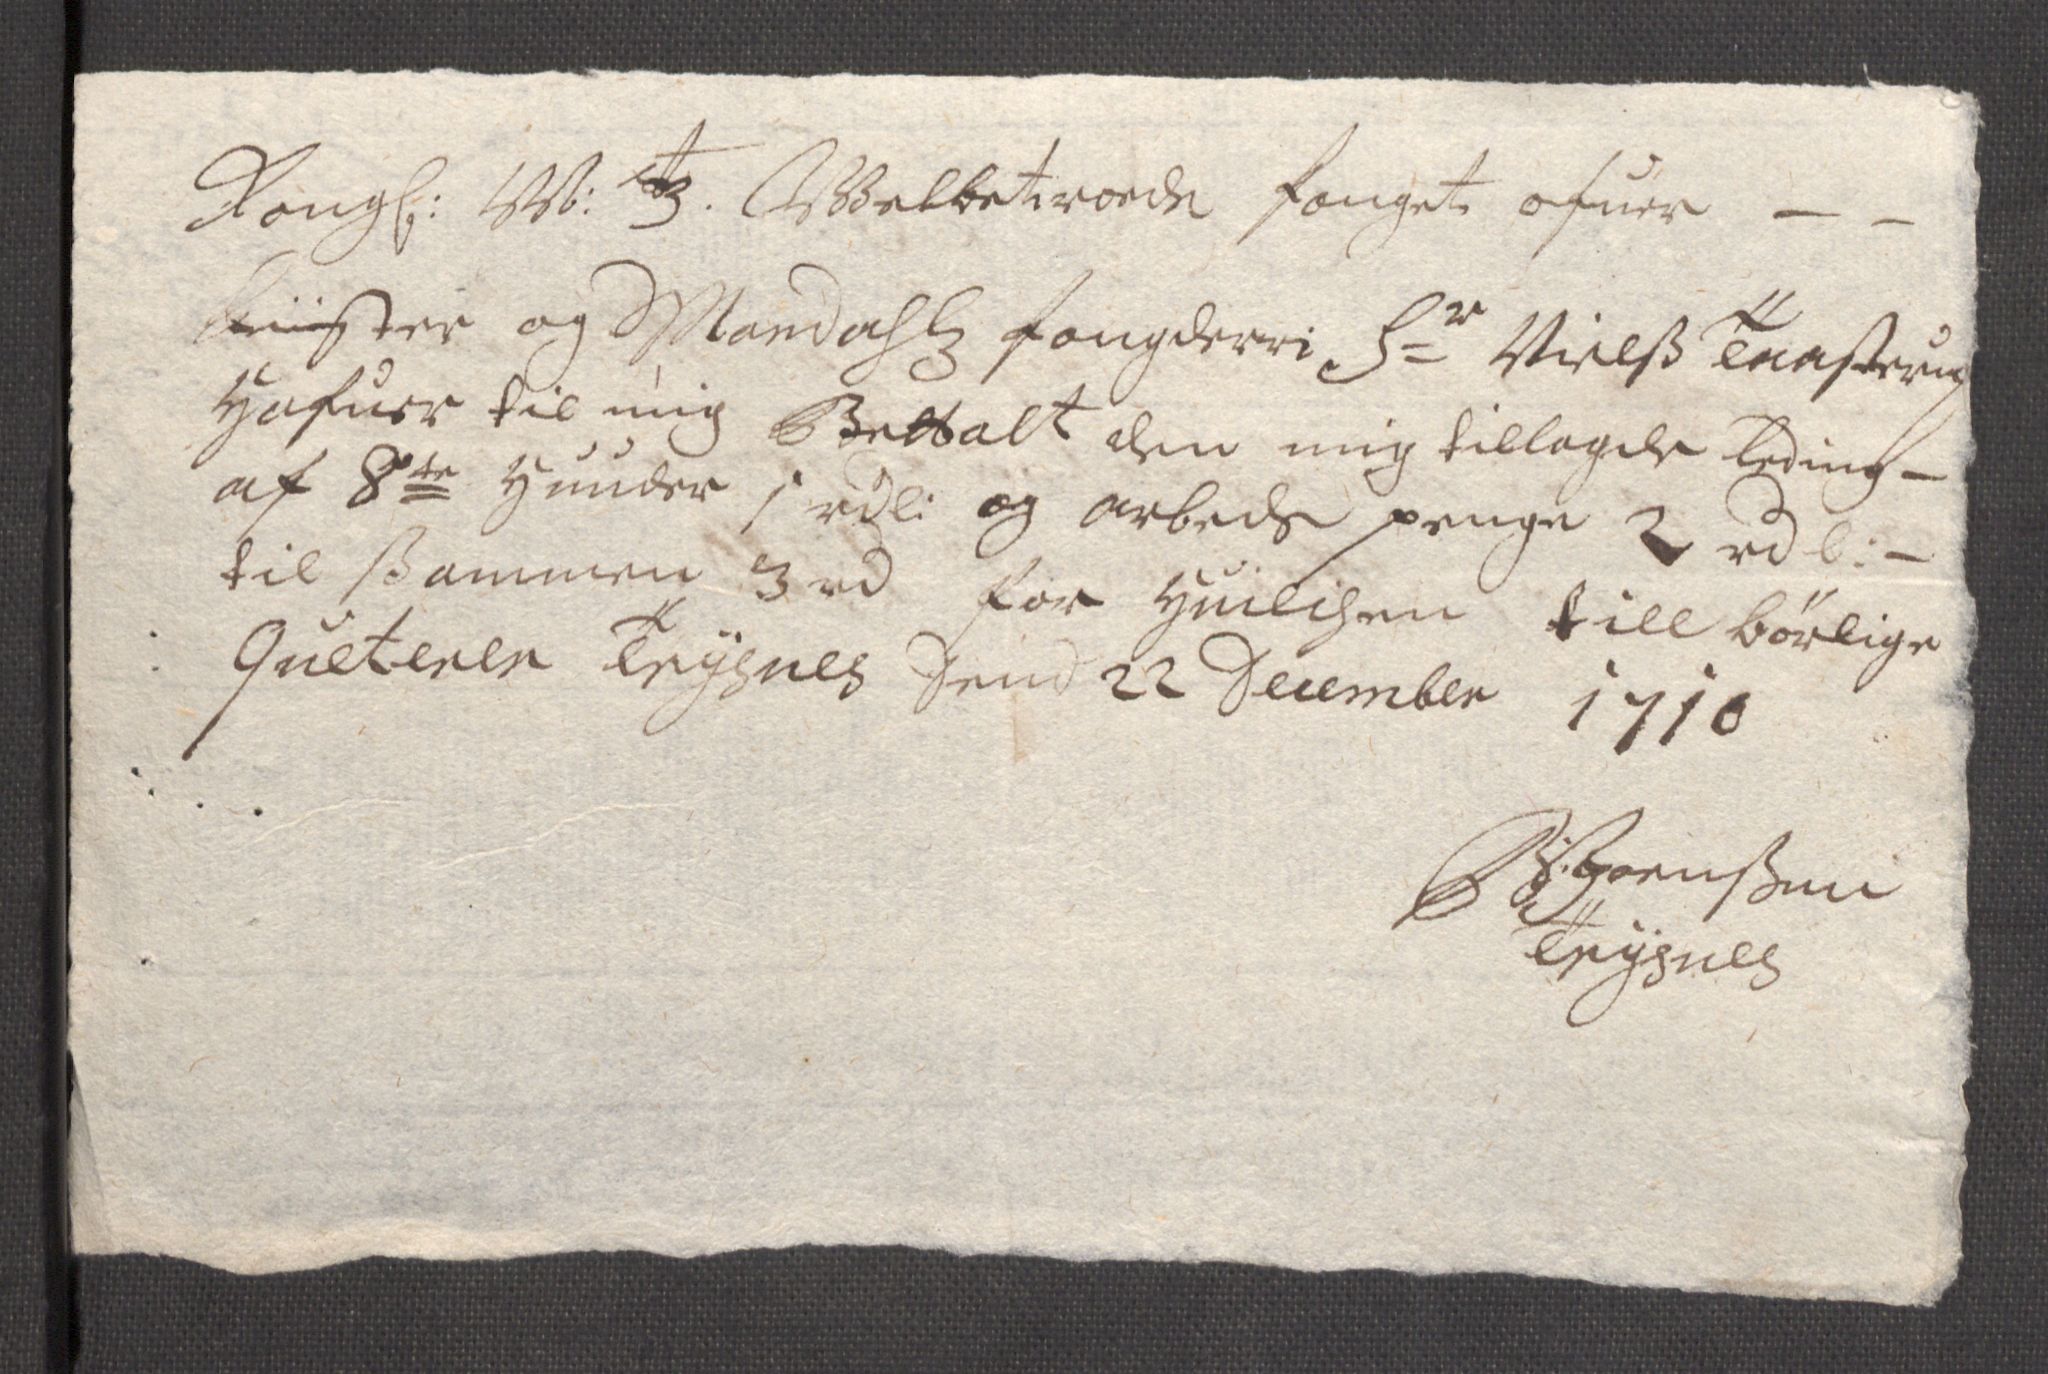 Kongl: M: tz. Welbetroede fouget ofuer — —
Liister og Mandahls fougderri Sr Nielß Taasterup
Hafuer til mig Bettalt den mig tillagde leding —
af 8te Hunder 1 rdl: og arbeds penge 2 rdl: —
til ßammen 3 rd for Huilchen till børlige
Quiterer Trÿsnes Dend 22 December 1710
Jörenßen
Trÿsnes